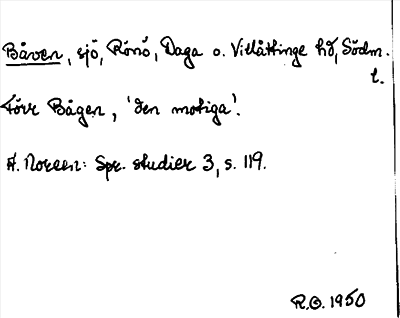 Båven, sjö, Rönö, Daga o. Villåttinge hd, Södm.
l.
Förr Bågen, 'den motiga'.
A. Noreen: Spr. studier 3, s. 119.
R.O. 1950